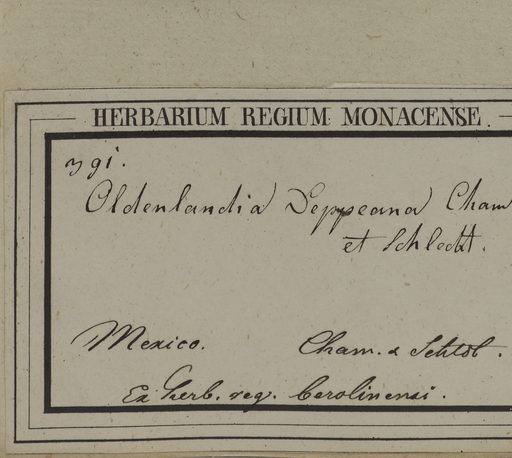 HERBARIUM REGIUM MONACENSE.
Oldenlandia Deppeana Cham
et Schlecht.
Mexico. Cham. & Schtdl.
Ex herb. reg. Berolinensi.